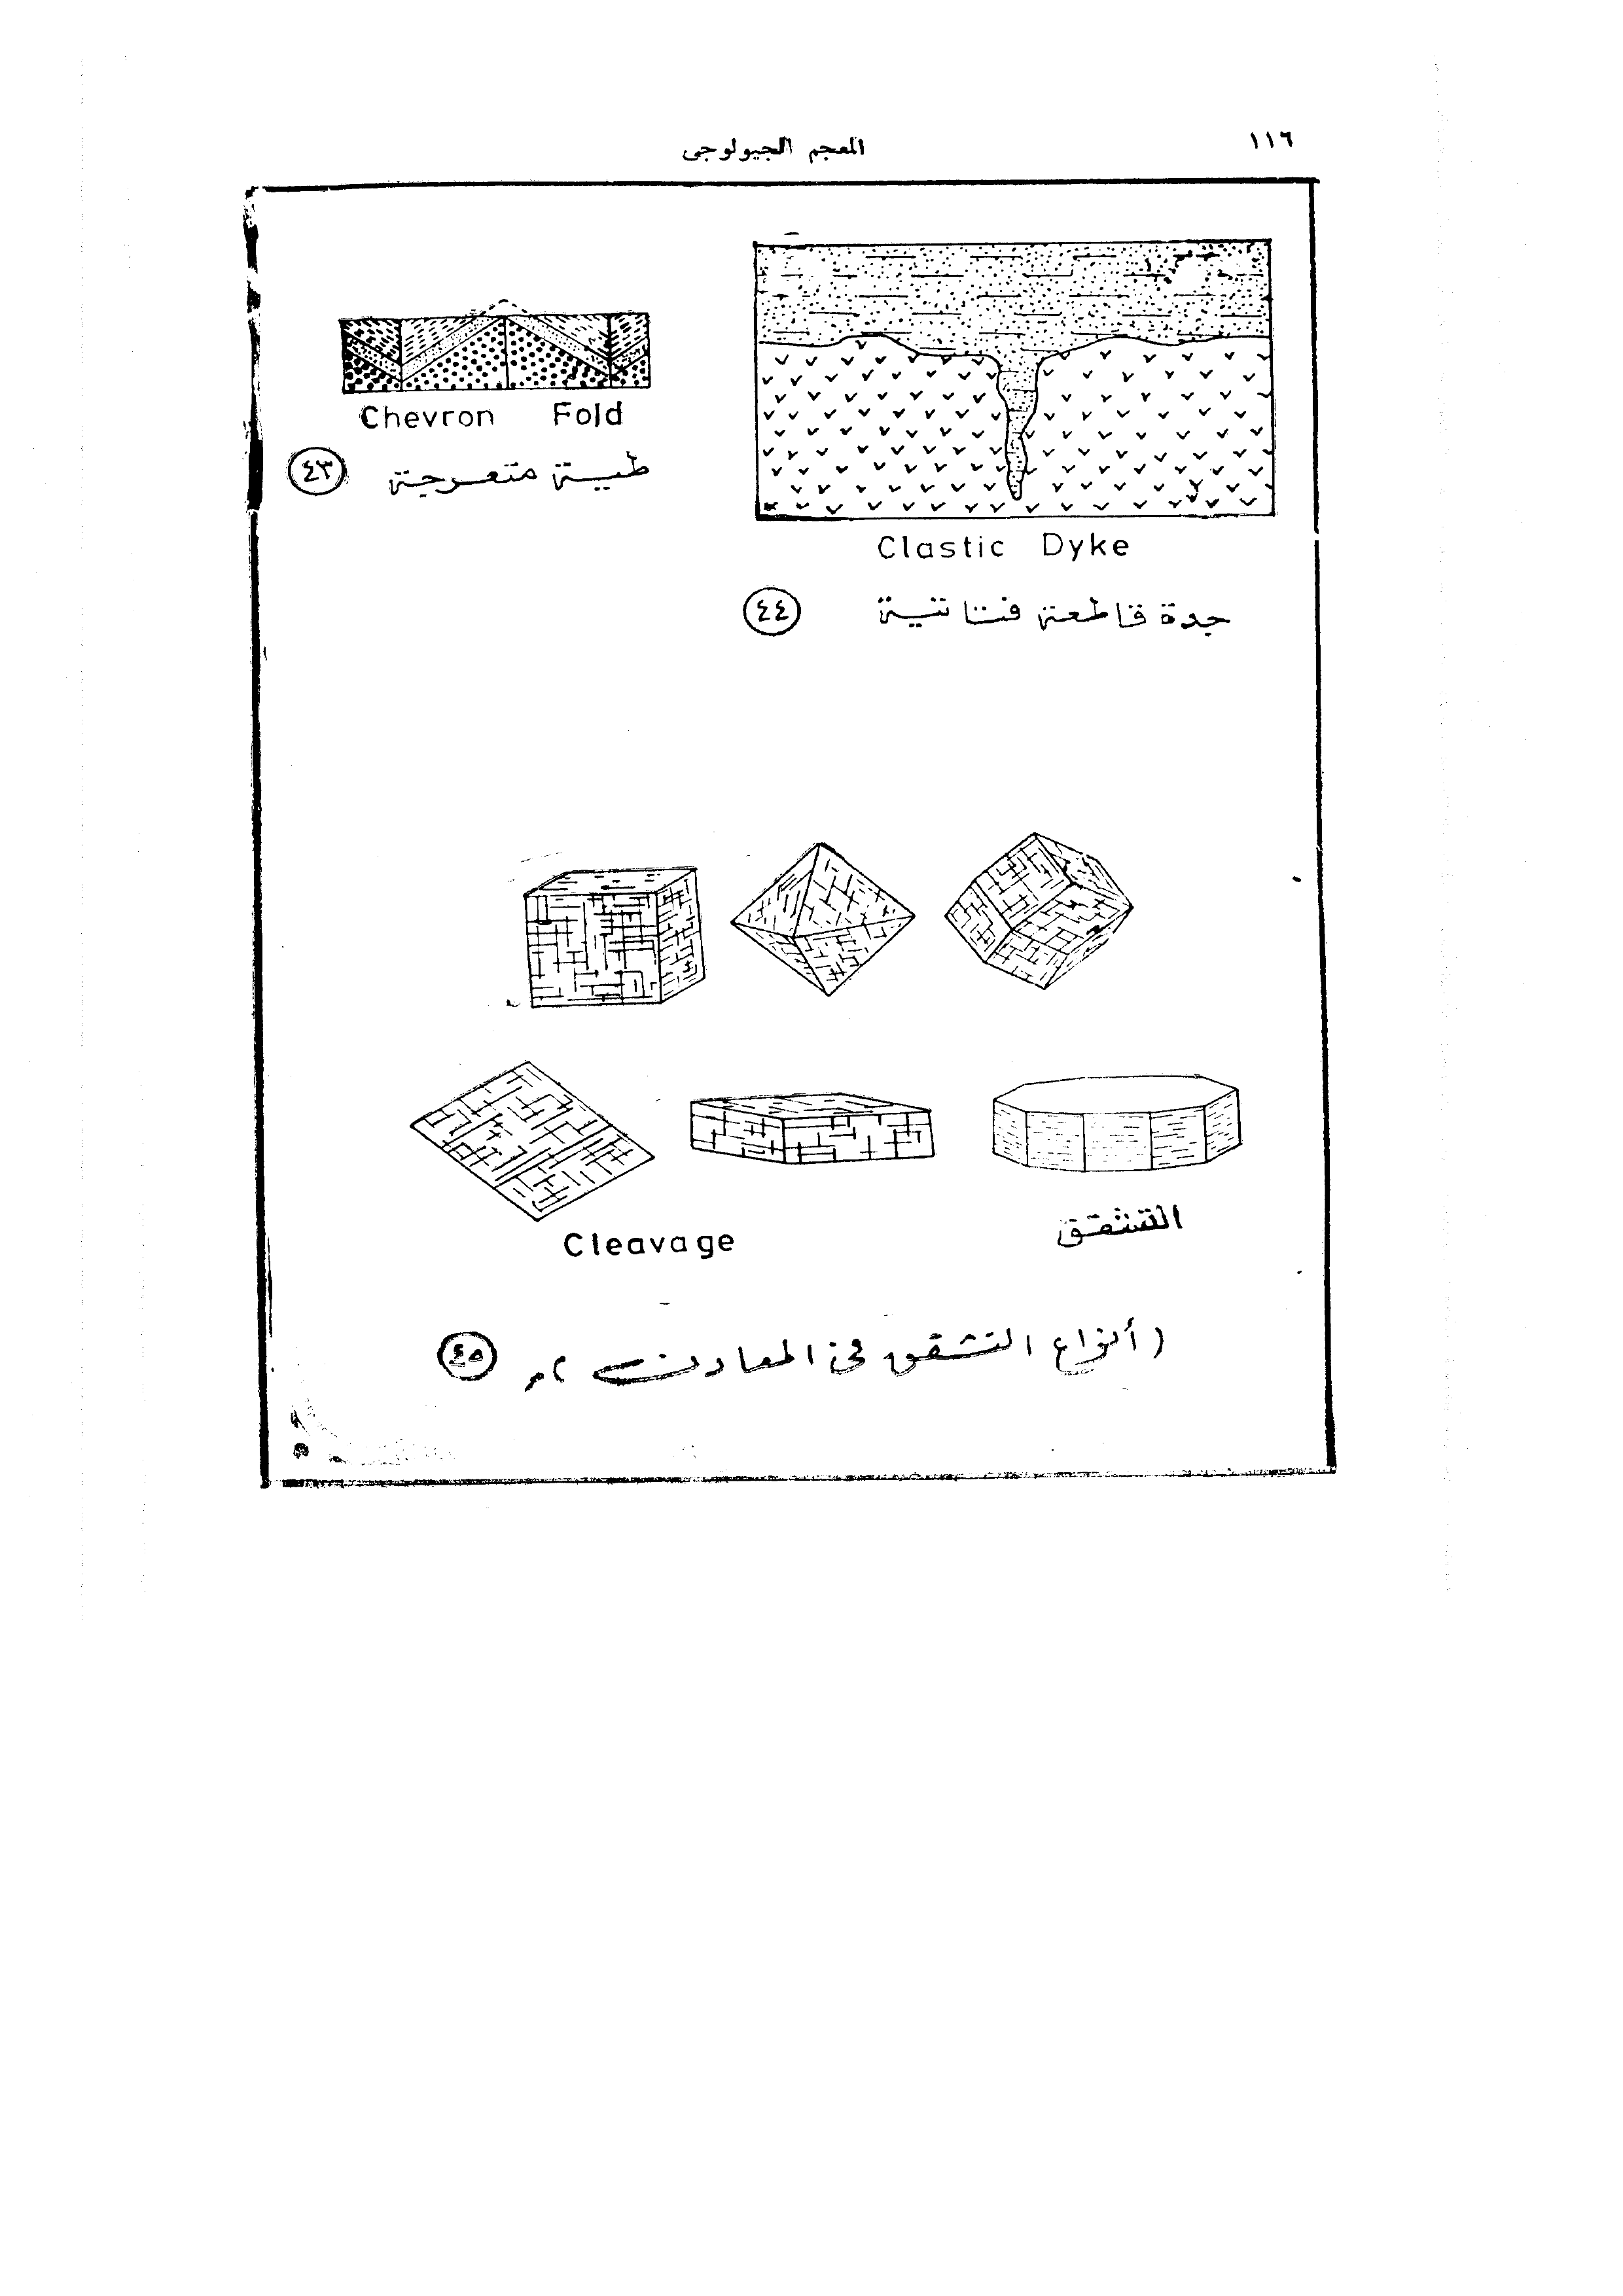 ١١٦
المعجم الجيولوجى
Chevron Fold
طية متعرجة ٤٣
Clastic Dyke
جدة قاطعة فتاتية ٤٤
Cleavage
التشقق
( أنواع التشقق فى المعادن ) ٤٥